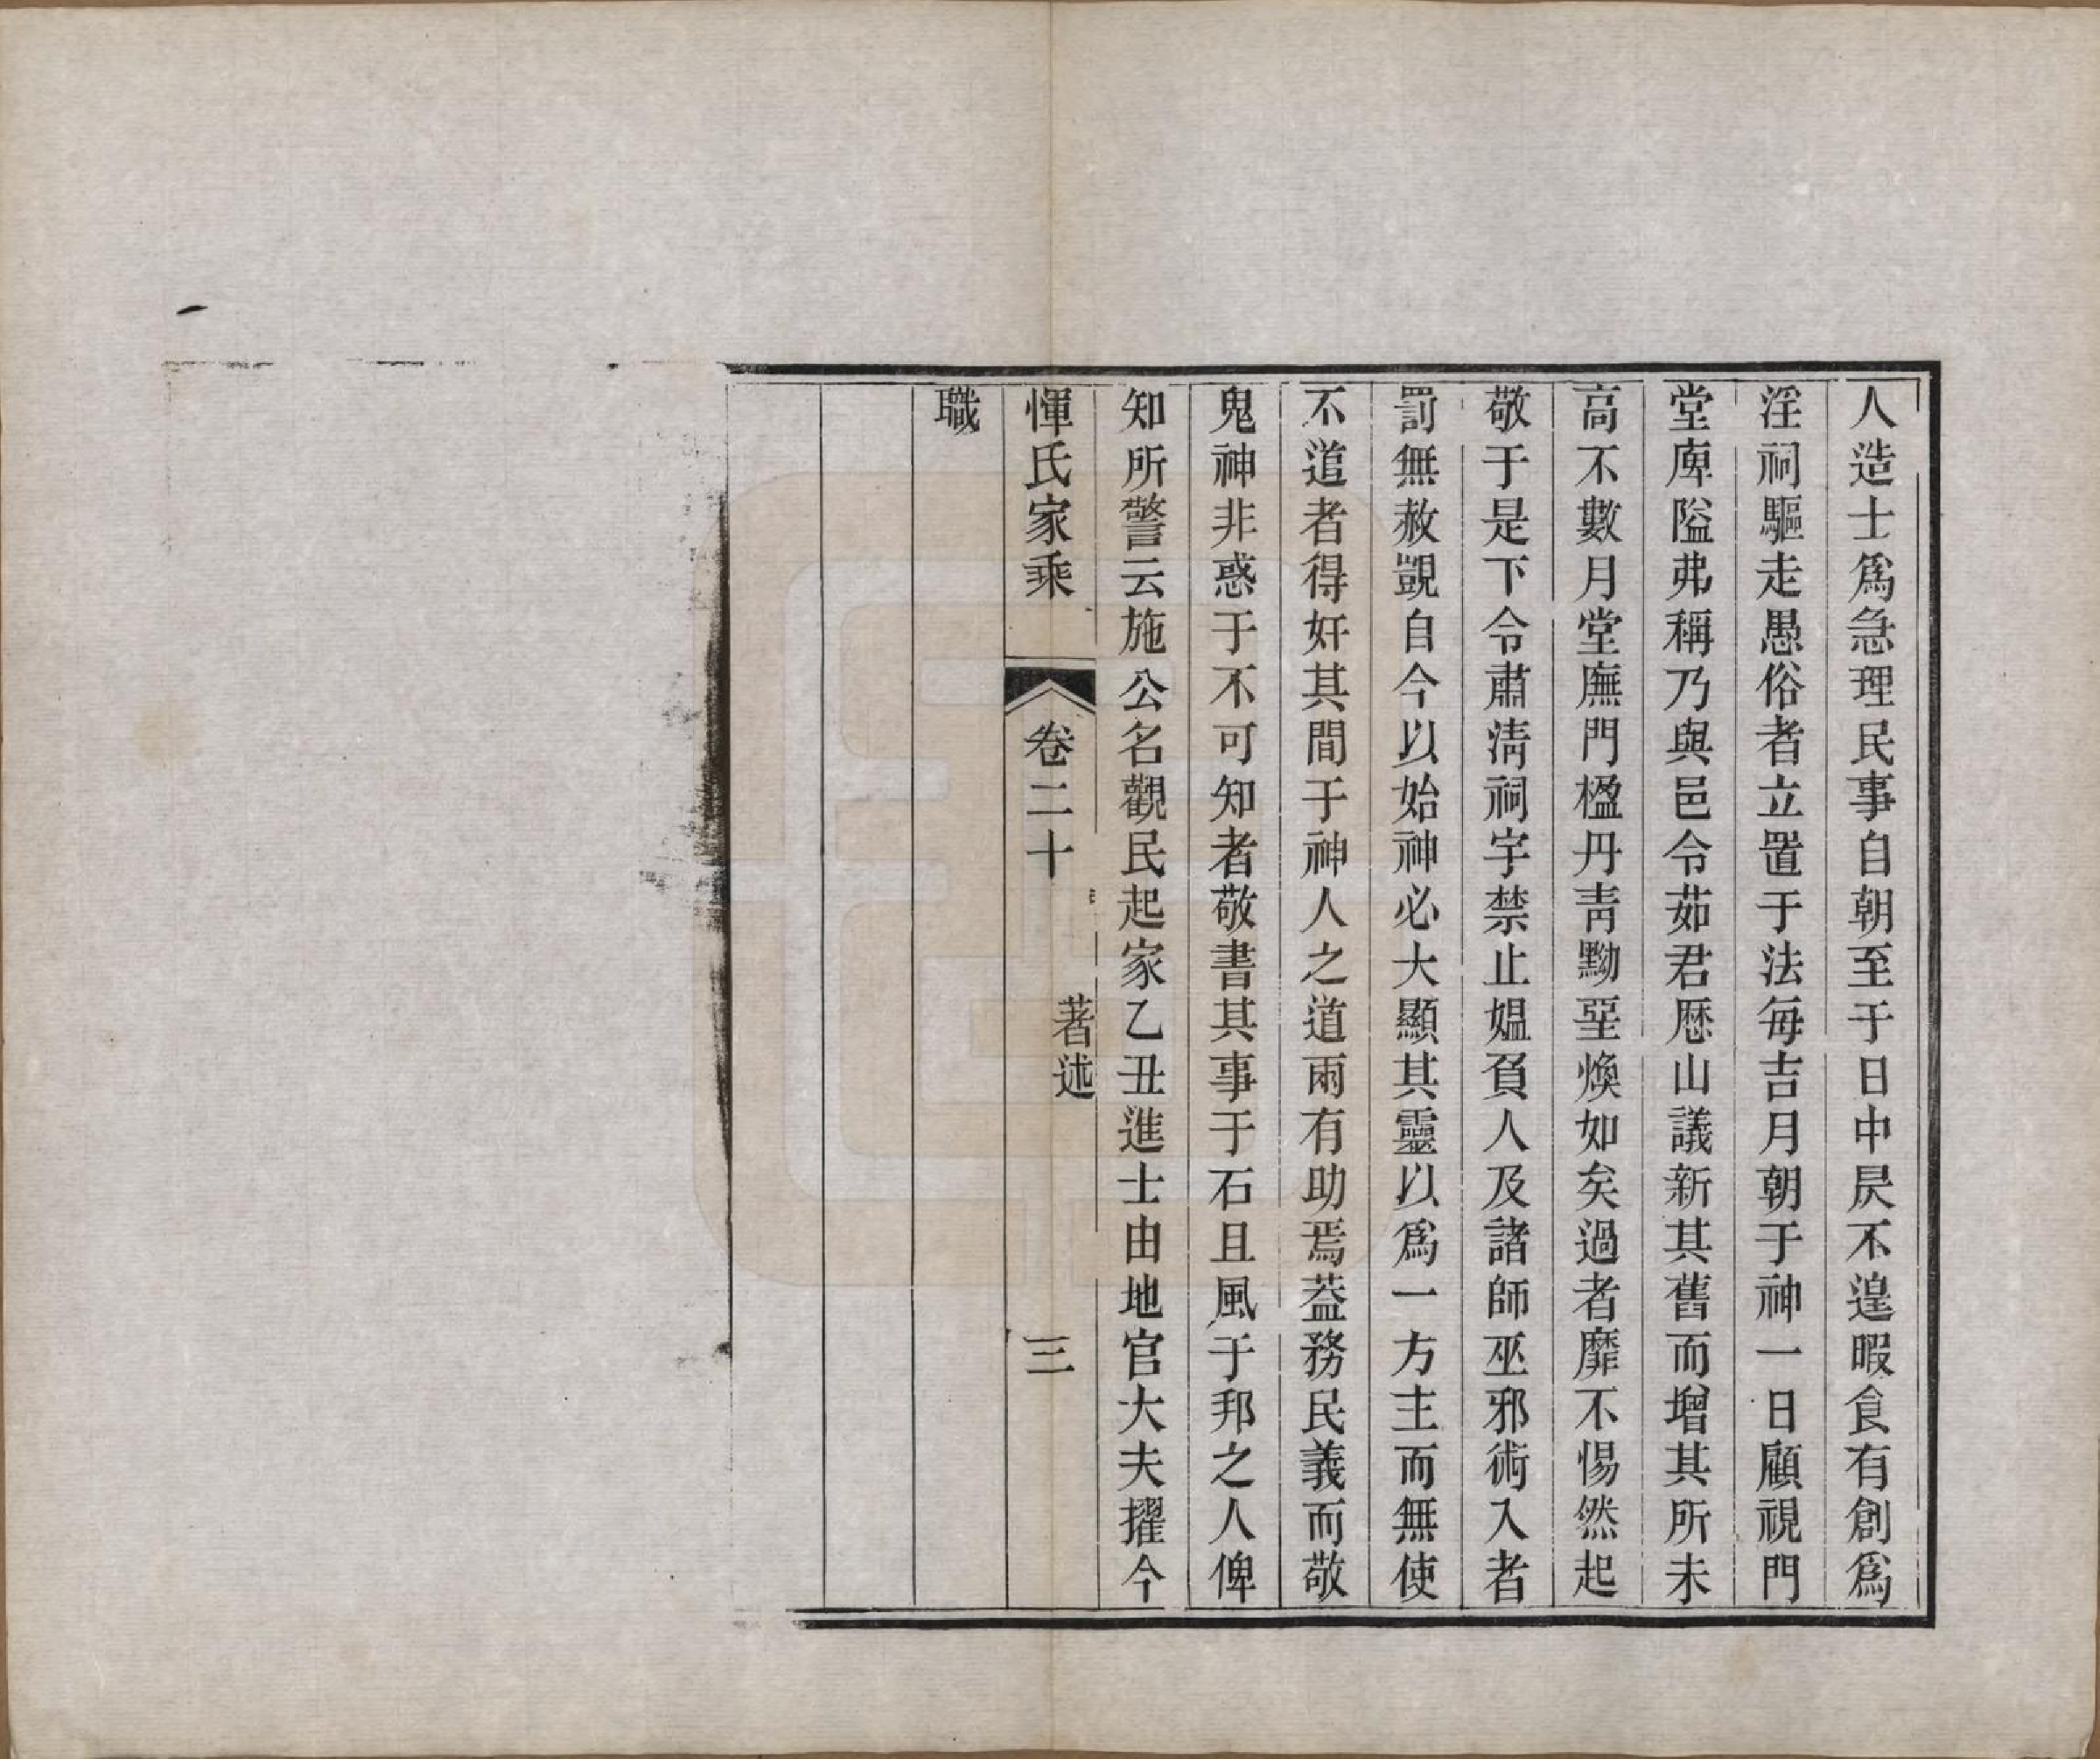 人造士爲急理民事自朝至于日中昃不遑暇食有創爲
淫祠驅走愚俗者立置于法每吉月朝于神一日顧視門
堂庳隘弗稱乃與邑令茹君歷山議新其舊而增其所未
高不數月堂廡門楹丹青黝堊煥如矣過者靡不惕然起
敬于是下令肅清祠宇禁止媼負人及諸師巫邪術入者
罰無赦覬自今以始神必大顯其靈以爲一方主而無使
不道者得奸其間于神人之道兩有助焉葢務民義而敬
鬼神非惑于不可知者敬書其事于石且風于邦之人俾
知所警云施公名觀民起家乙丑進士由地官大夫擢今
惲氏家乘 卷二十 著述 三
職